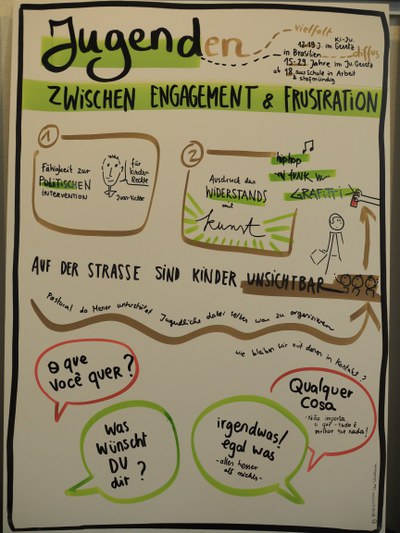 Jugenden
vielfalt
diffus
Ki-Ju.
12-18 J. im Gesetz
in Brasilien
15-29 Jahre im Ju.Gesetz
ab 18 aus schule in Arbeit
& strafmündig
ZWISCHEN ENGAGEMENT & FRUSTRATION
1
Fähigkeit zur
POLITISCHEN
INTERVENTION
für
Kinder-
Rechte
2
Ausdruck des
WIDERSTANDS
mit
Kunst
hiphop
FUNK
GRAFITTI
AUF DER STRASSE SIND KINDER UNSICHTBAR
Pastoral do Menor unterstützt Jugendliche dabei selber was zu organisieren
wie bleiben wir mit denen in Kontakt?
O que
você quer?
Was
wünscht
DU
dir?
irgendwas!
egal was
- alles besser
als nichts -
Qualquer
cosa
- Não importa
o quê - tudo é
melhor que nada!